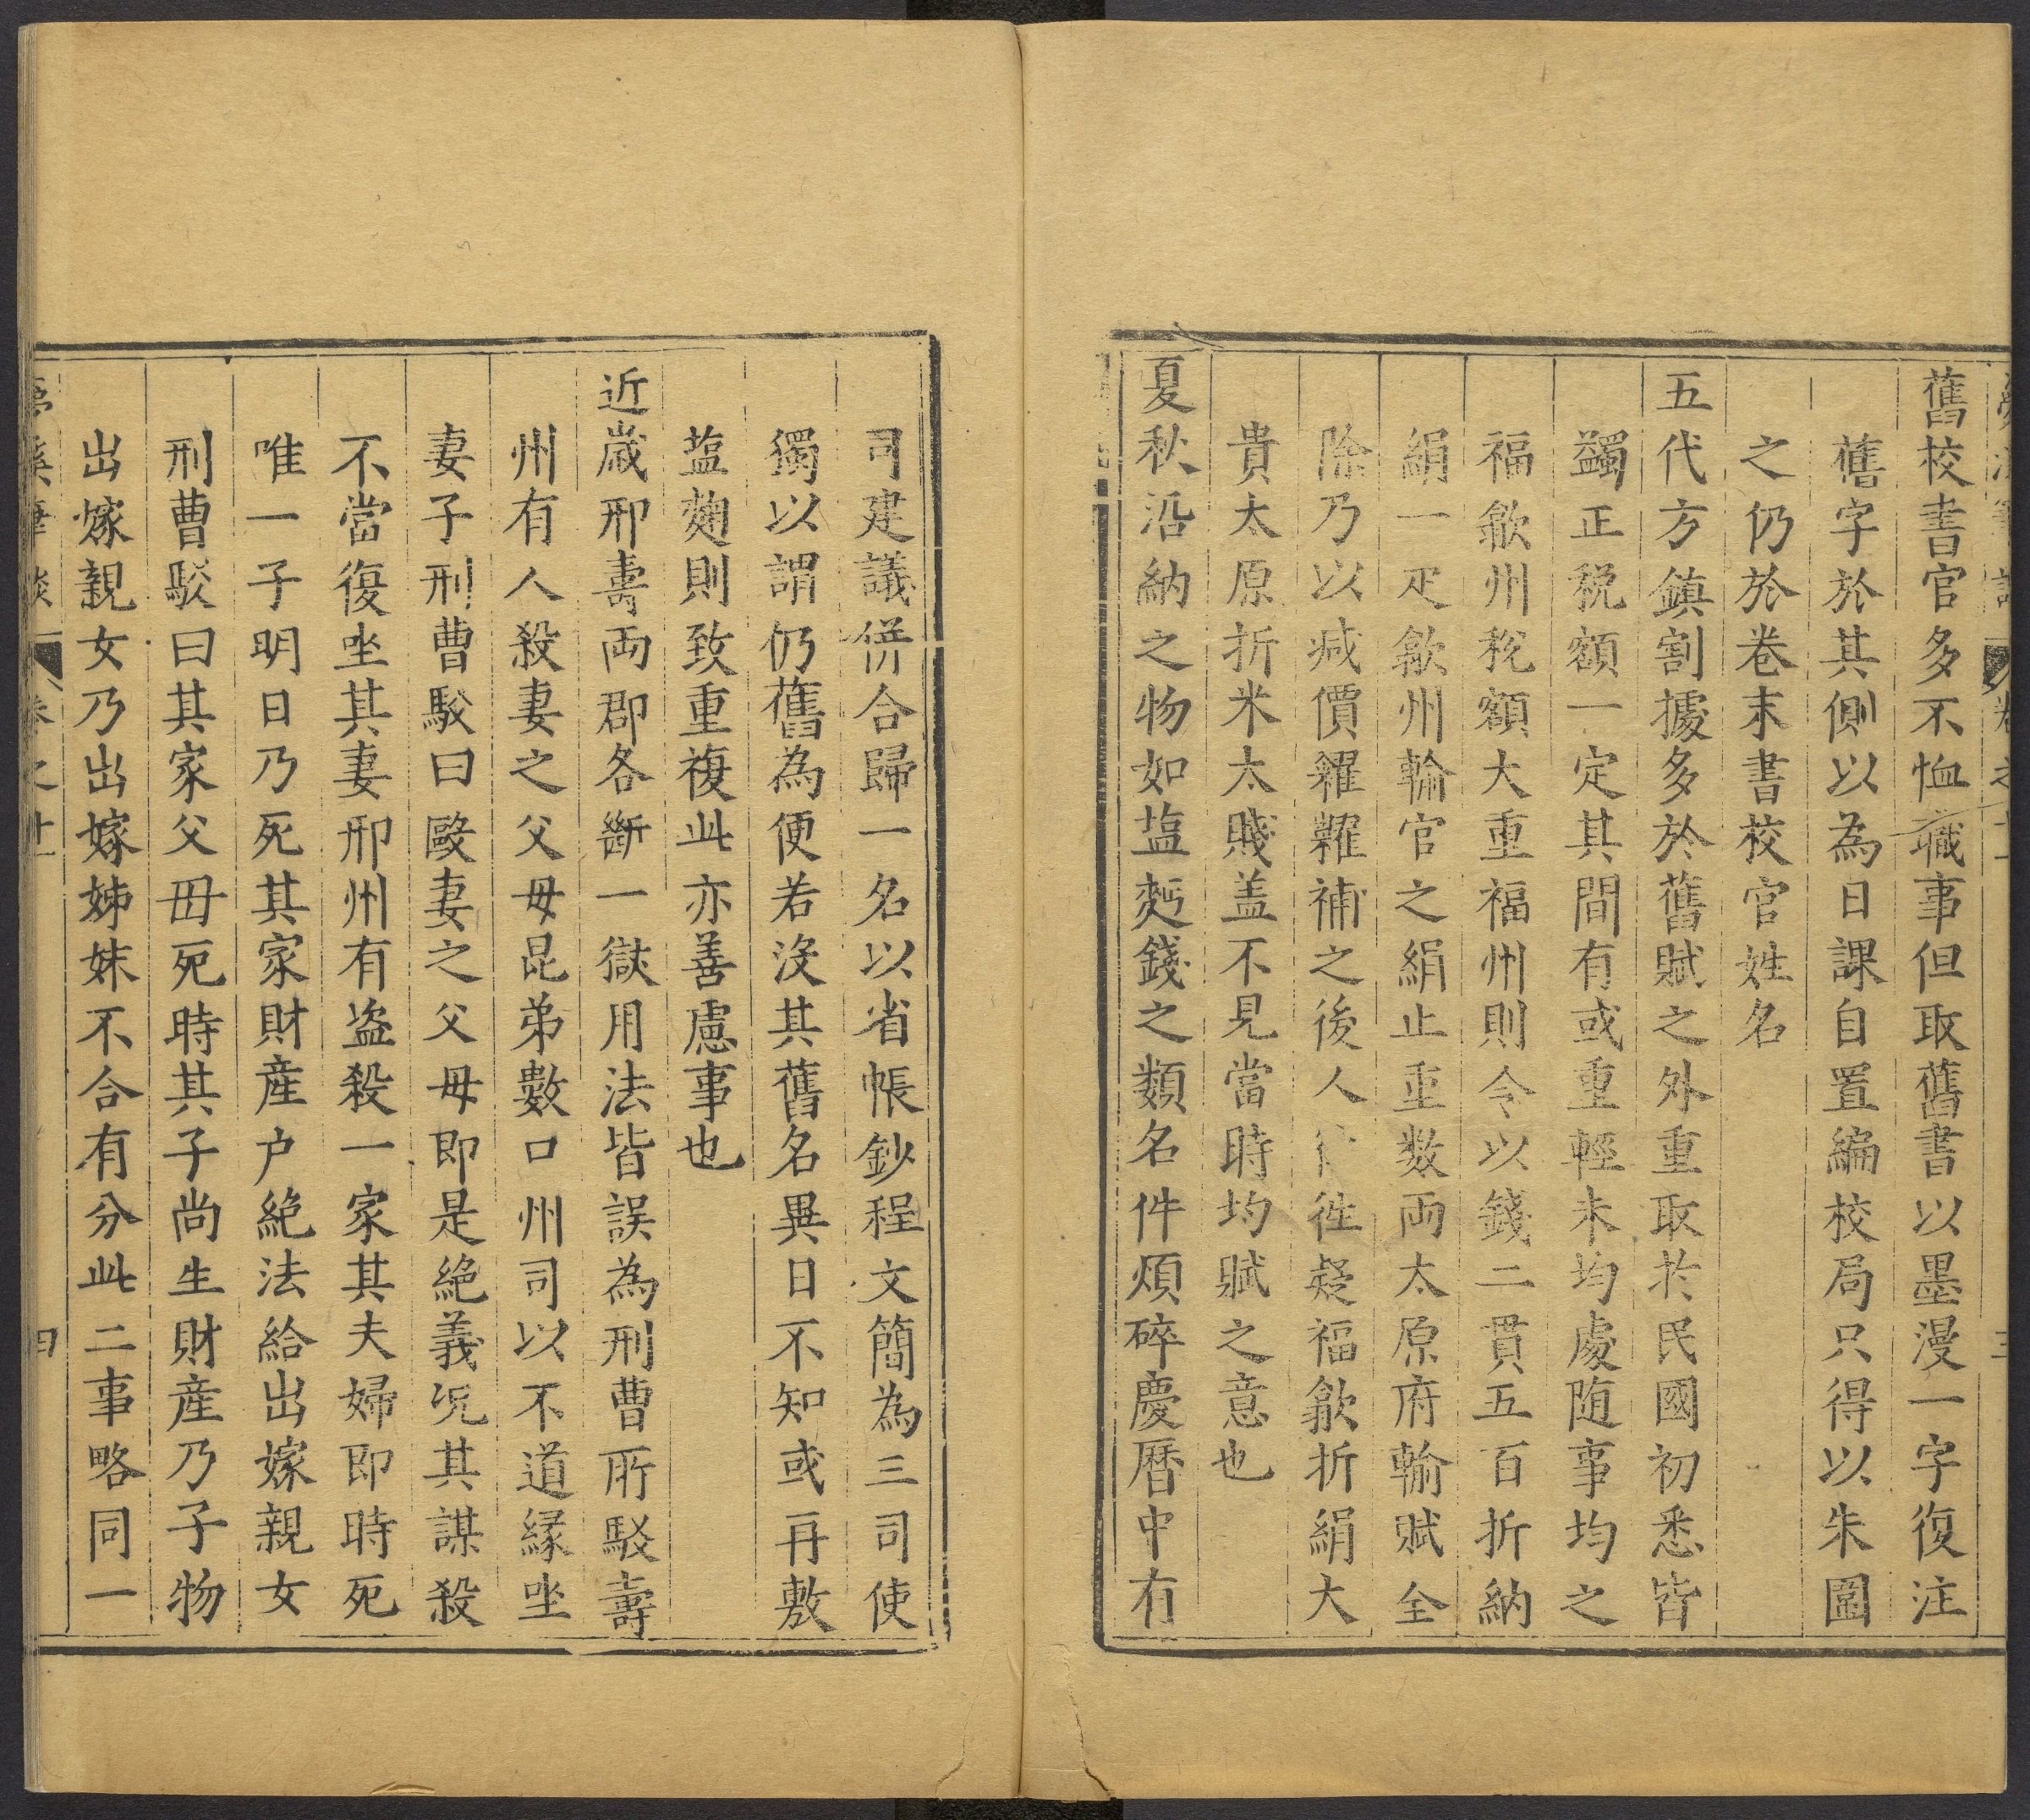 舊校書官多不恤職事但取舊書以墨漫一字復注
舊字於其側以為日課自置編校局只得以朱圍
之仍於卷末書校官姓名
五代方鎮割據多於舊賦之外重取於民國初悉皆
蠲正税額一定其間有或重輕未均處随事均之
福歙州税額太重福州則令以錢二貫五百折納
絹一疋歙州輸官之絹止重数兩太原府輸賦全
除乃以减價糴糶補之後人徃疑福歙折絹大
貴太原折米太賤盖不見當時均賦之意也
夏秋沿納之物如塩麪錢之類名件煩碎慶曆中有
司建議併合歸一名以省帳鈔程文簡為三司使
獨以謂仍舊為便若沒其舊名異日不知或再敷
塩麴則致重複此亦善慮事也
近歲邢壽兩郡各斷一獄用法皆誤為刑曹所駁壽
州有人殺妻之父母昆弟數口州司以不道縁坐
妻子刑曹駁曰毆妻之父母即是絶義况其謀殺
不當復坐其妻邢州有盗殺一家其夫婦即時死
唯一子明日乃死其家財産户絶法給出嫁親女
刑曹駁曰其家父母死時其子尚生財産乃子物
出嫁親女乃出嫁姊妹不合有分此二事略同一
卷之十一
四